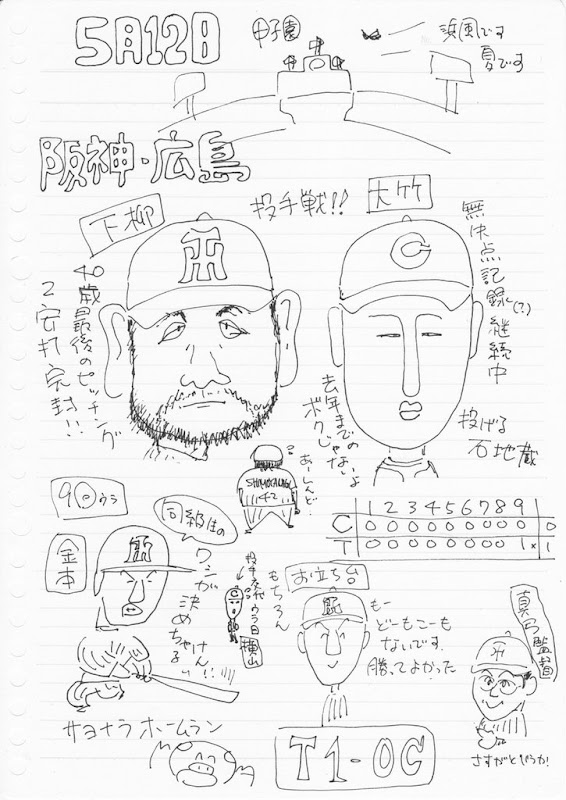 5月12日
甲子園
浜風です
夏です
阪神・広島
投手戦!!
下柳
大竹
40歳最後のピッチング
2安打完封!!
無失点記録(?)継続中
去年までの
ボクじゃないよ
投げる
石地蔵
あーしんど
SHIMOYANAGI
42
1 2 3 4 5 6 7 8 9
C 0 0 0 0 0 0 0 0 0 0
T 0 0 0 0 0 0 0 0 1x 1
9回ウラ
金本
同級生の
ワシが
決めちゃる
けん!!
サヨナラ ホームラン
横山
お立ち台
もちろん
もー
どーもこーも
ないです
勝ってよかった
真弓監督
T1-0C